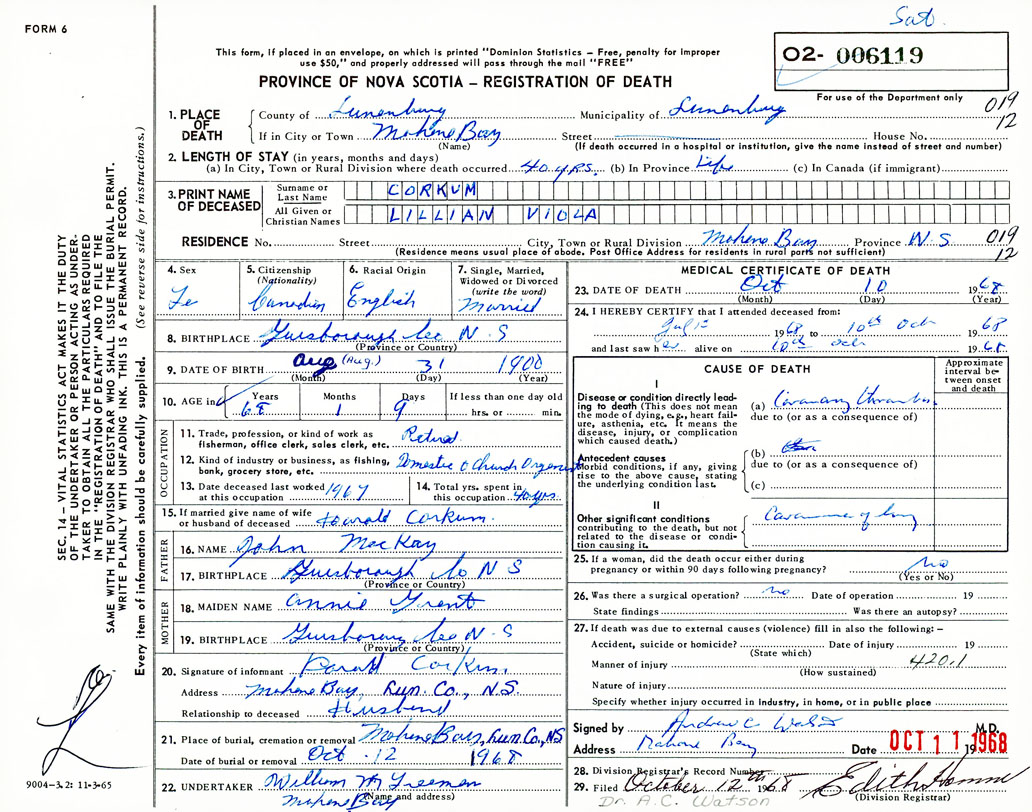 Sat.
FORM 6
O2- 006119
This form, if placed in an envelope, on which is printed "Dominion Statistics – Free, penalty for improper
use $50," and properly addressed will pass through the mail "FREE"
PROVINCE OF NOVA SCOTIA – REGISTRATION OF DEATH
For use of the Department only
019
12
1. PLACE OF DEATH
County of Lunenburg Municipality of Lunenburg
If in City or Town Mahone Bay Street House No.
(Name) (If death occurred in a hospital or institution, give the name instead of street and number)
2. LENGTH OF STAY (in years, months and days)
(a) In City, Town or Rural Division where death occurred 40 yrs. (b) In Province Life (c) In Canada (if immigrant)
3. PRINT NAME OF DECEASED
Surname or Last Name CORKUM
All Given or Christian Names LILLIAN VIOLA
RESIDENCE No. Street City, Town or Rural Division Mahone Bay Province N.S. 019
(Residence means usual place of abode. Post Office Address for residents in rural parts not sufficient) 12
4. Sex Fe
5. Citizenship (Nationality) Canadian
6. Racial Origin English
7. Single, Married, Widowed or Divorced (write the word) Married
8. BIRTHPLACE Guysborough Co N.S
(Province or Country)
9. DATE OF BIRTH Aug (Aug.) 31 1900
(Month) (Day) (Year)
10. AGE in Years 68 Months 1 Days 9 If less than one day old hrs. or min.
OCCUPATION
11. Trade, profession, or kind of work as fisherman, office clerk, sales clerk, etc. Retired
12. Kind of industry or business, as fishing, bank, grocery store, etc. Domestic & Church Organist
13. Date deceased last worked at this occupation 1967
14. Total yrs. spent in this occupation 40 yrs
15. If married give name of wife or husband of deceased Corkum
FATHER
16. NAME John MacKay
17. BIRTHPLACE Guysborough Co N S
(Province or Country)
MOTHER
18. MAIDEN NAME Annie Grant
19. BIRTHPLACE Co N.S
(Province or Country)
20. Signature of informant Corkum
Address Mahone Bay, Lun. Co., N.S.
Relationship to deceased Husband
21. Place of burial, cremation or removal Mahone Bay, Lun. Co., NS
Date of burial or removal Oct 12 1968
22. UNDERTAKER William M
Mahone Bay (Name and address)
MEDICAL CERTIFICATE OF DEATH
23. DATE OF DEATH Oct 10 1968
(Month) (Day) (Year)
24. I HEREBY CERTIFY that I attended deceased from:
1968 to 10th Oct 1968
and last saw her alive on 10th Oct 1968
CAUSE OF DEATH
Approximate interval between onset and death
I
Disease or condition directly leading to death (This does not
mean the mode of dying, e.g., heart failure, asthenia, etc. It means the
disease, injury, or complication
which caused death.)
(a) Coronary thrombosis
due to (or as a consequence of)
Antecedent causes
Morbid conditions, if any, giving
rise to the above cause, stating
the underlying condition last.
(b)
due to (or as a consequence of)
(c)
II
Other significant conditions
contributing to the death, but not
related to the disease or condition causing it.
Carcinoma of lung
25. If a woman, did the death occur either during
pregnancy or within 90 days following pregnancy? no
(Yes or No)
26. Was there a surgical operation? no Date of operation 19
State findings Was there an autopsy?
27. If death was due to external causes (violence) fill in also the following: –
Accident, suicide or homicide? Date of injury 19
(State which)
Manner of injury 420.1
(How sustained)
Nature of injury
Specify whether injury occurred in industry, in home, or in public place
Signed by Andrew C M.D.
Address Mahone Bay Date OCT 11 1968
28. Division Registrar's Record Number
29. Filed October 12th 1968 Edith
(Division Registrar)
Dr. A.C. Watson
SEC. 14 – VITAL STATISTICS ACT MAKES IT THE DUTY
OF THE UNDERTAKER OR PERSON ACTING AS UNDER-
TAKER TO OBTAIN ALL THE PARTICULARS REQUIRED
IN THE "REGISTRATION OF DEATH" AND TO FILE THE
SAME WITH THE DIVISION REGISTRAR WHO SHALL ISSUE THE BURIAL PERMIT.
WRITE PLAINLY WITH UNFADING INK. THIS IS A PERMANENT RECORD.
Every item of information should be carefully supplied. (See reverse side for instructions.)
9004-3.2: 11-3-65